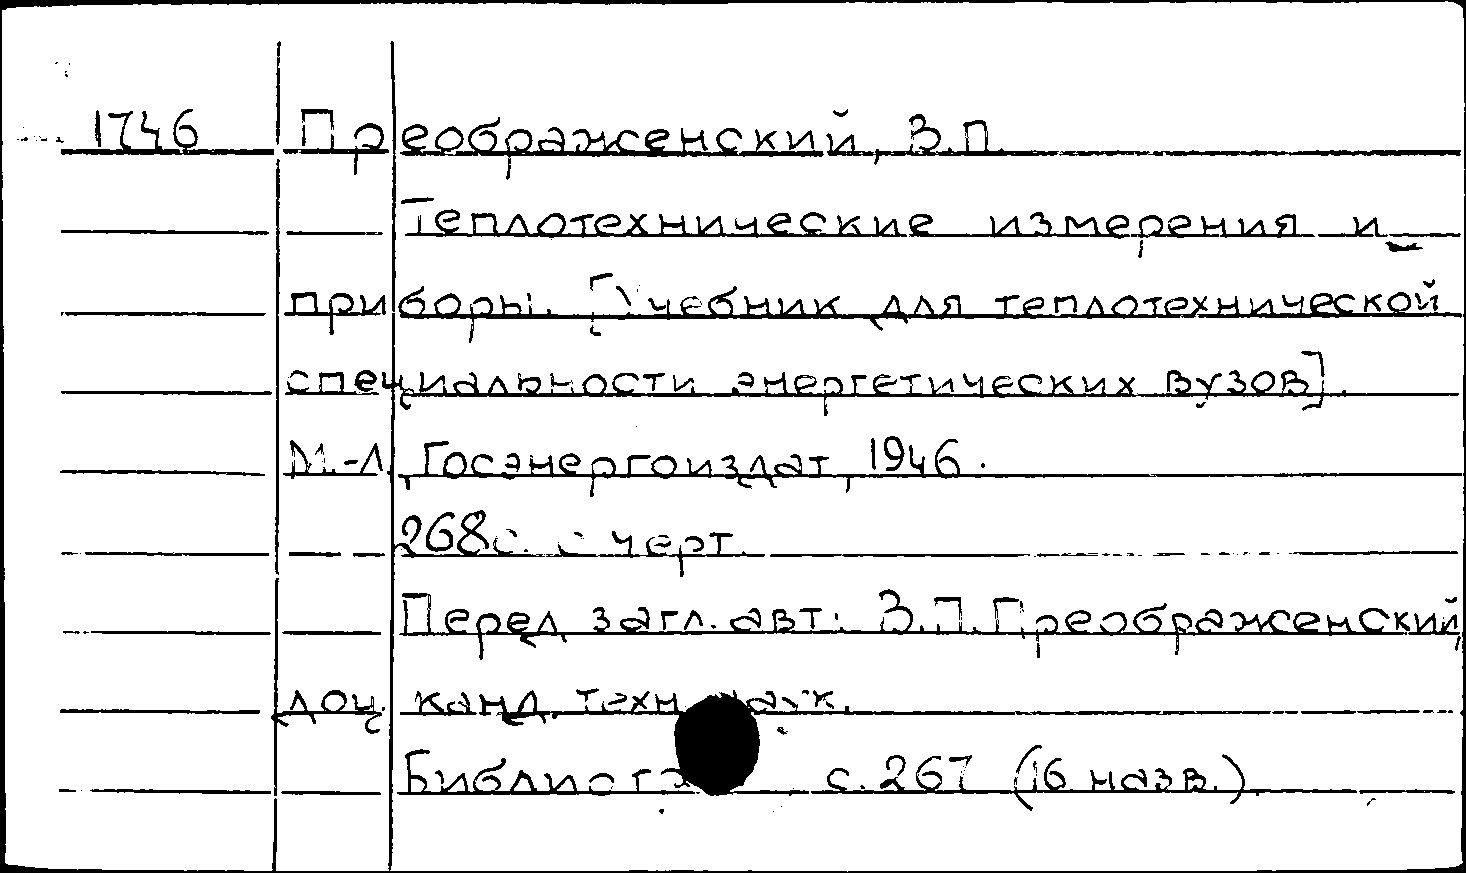 1746 Преображенский, В.П.
Теплотехнические измерения и
приборы. [Учебник для теплотехнической
специальности энергетических вузов].
М.-Л., Госэнергоиздат, 1946.
268с. с черт.
Перед загл. авт.: В.П.Преображенский,
доц. канд. техн. наук.
с. 267 (16 назв.).